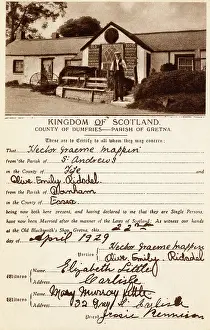 KINGDOM OF SCOTLAND.
COUNTY OF DUMFRIES—PARISH OF GRETNA
These are to Certify to all whom they may concern:
That Hector Graeme Mappin
from the Parish of St Andrews
in the County of Fife and
Olive Emily Ridsdel
from the Parish of Danham
in the County of Essex
being now both here present, and having declared to me that they are Single Persons,
have now been Married after the manner of the Laws of Scotland: As witness our hands
at the Old Blacksmith's Shop, Gretna, this 22nd day of
April 1929
Hector Graeme Mappin
Parties Olive Emily Ridsdel
Witness Name, Elizabeth Little
Address, Carlisle
Witness Name, Mary Murray Little
Address, Carlisle